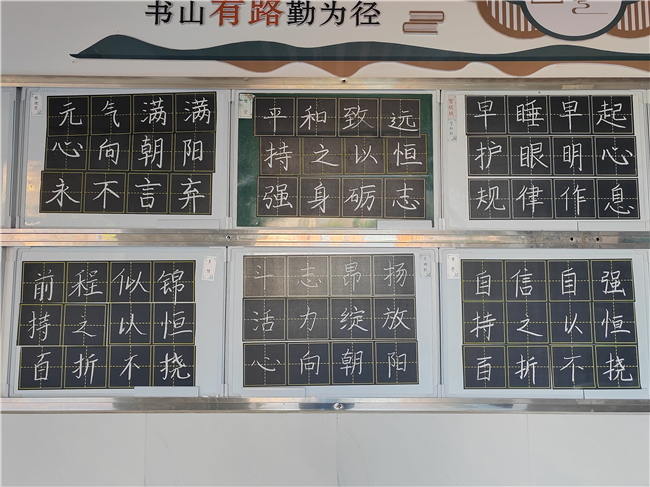 书山有路勤为径
元气满满
心向朝阳
永不言弃
平和致远
持之以恒
强身砺志
早睡早起
护眼明心
规律作息
前程似锦
持之以恒
百折不挠
斗志昂扬
活力绽放
心向朝阳
自信自强
持之以恒
百折不挠